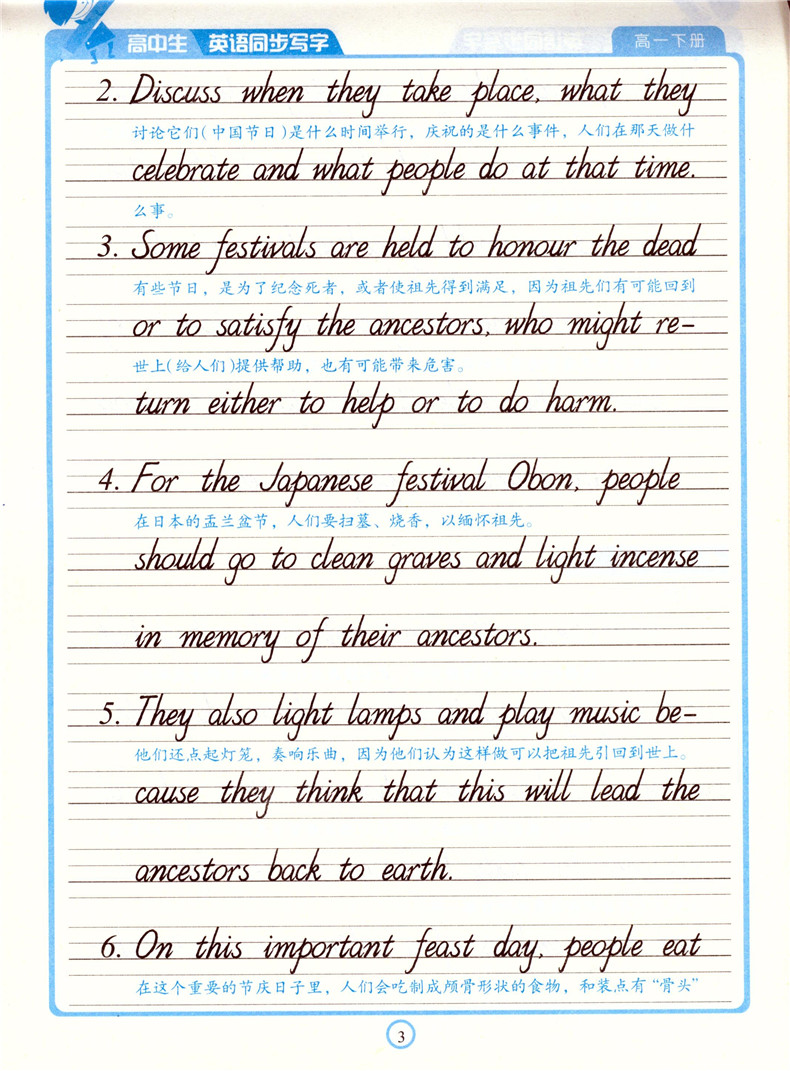 高中生 英语同步写字
高一下册
2. Discuss when they take place, what they
讨论它们(中国节日)是什么时间举行，庆祝的是什么事件，人们在那天做什
celebrate and what people do at that time.
么事。
3. Some festivals are held to honour the dead
有些节日，是为了纪念死者，或者使祖先得到满足，因为祖先们有可能回到
or to satisfy the ancestors, who might re-
世上(给人们)提供帮助，也有可能带来危害。
turn either to help or to do harm.
4. For the Japanese festival Obon, people
在日本的盂兰盆节，人们要扫墓、烧香，以缅怀祖先。
should go to clean graves and light incense
in memory of their ancestors.
5. They also light lamps and play music be-
他们还点起灯笼，奏响乐曲，因为他们认为这样做可以把祖先引回到世上。
cause they think that this will lead the
ancestors back to earth.
6. On this important feast day, people eat
在这个重要的节庆日子里，人们会吃制成颅骨形状的食物，和装点有“骨头”
3